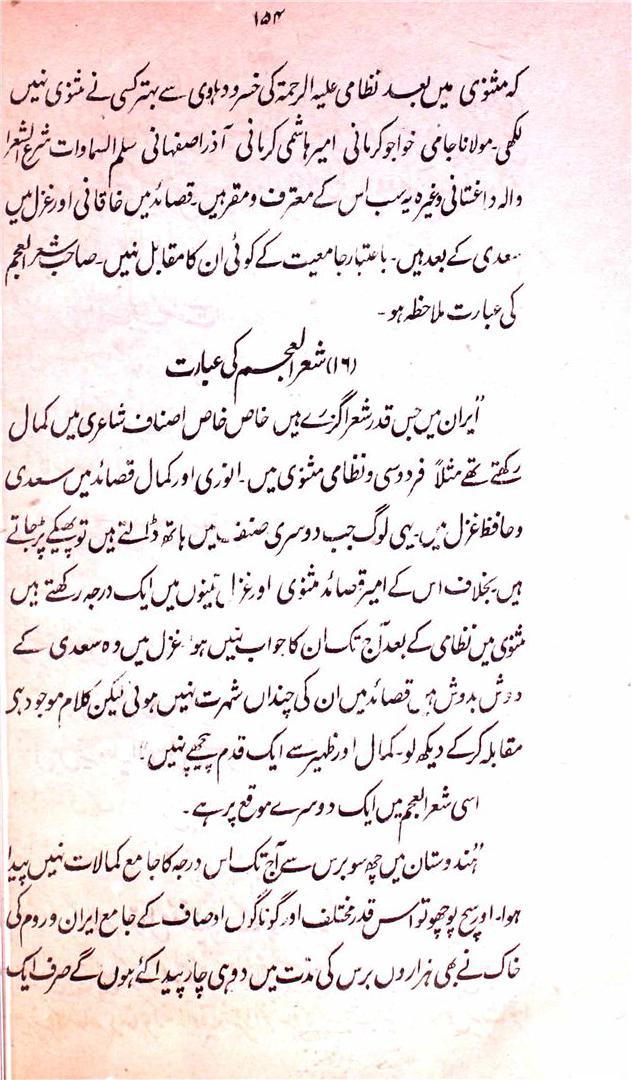 ۱۵۴
کہ مثنوی میں بعد نظامی علیہ الرحمۃ کی خسرو دہلوی سے بہتر کسی نے مثنوی نہیں
لکھی۔ مولانا جامی خواجو کرمانی امیر ہاشمی کرمانی آذر اصفہانی سلم السماوات شرع الشعرا
والہ داغستانی وغیرہ یہ سب اس کے معترف و مقر ہیں۔ قصائد میں خاقانی اور غزل میں
سعدی کے بعد ہیں۔ باعتبار جامعیت کے کوئی ان کا مقابل نہیں۔ صاحب شعر العجم
کی عبارت ملاحظہ ہو۔
(۱۶) شعر العجم کی عبارت
"ایران میں جس قدر شعرا گزرے ہیں خاص خاص اصناف شاعری میں کمال
رکھتے تھے مثلاً فردوسی و نظامی مثنوی میں۔ انوری اور کمال قصائد میں سعدی
و حافظ غزل میں۔ یہی لوگ جب دوسری صنف میں ہاتھ ڈالتے ہیں تو پھیکے پڑجاتے
ہیں بخلاف اس کے امیر قصائد مثنوی اور غزل تینوں میں ایک درجہ رکھتے ہیں
مثنوی میں نظامی کے بعد آج تک ان کا جواب نہیں ہوا غزل میں وہ سعدی کے
دوش بدوش ہیں قصائد میں ان کی چنداں شہرت نہیں ہوئی لیکن کلام موجود ہی
مقابلہ کرکے دیکھ لو۔ کمال اور ظہیر سے ایک قدم پیچھے نہیں"
اسی شعر العجم میں ایک دوسرے موقع پر ہے۔
"ہندوستان میں چھ سو برس سے آج تک اس درجہ کا جامع کمالات نہیں پیدا
ہوا۔ اور سچ پوچھو تو اس قدر مختلف اور گوناگوں اوصاف کے جامع ایران و روم کی
خاک نے بھی ہزاروں برس کی مدت میں دو ہی چار پیدا کئے ہوں گے صرف ایک